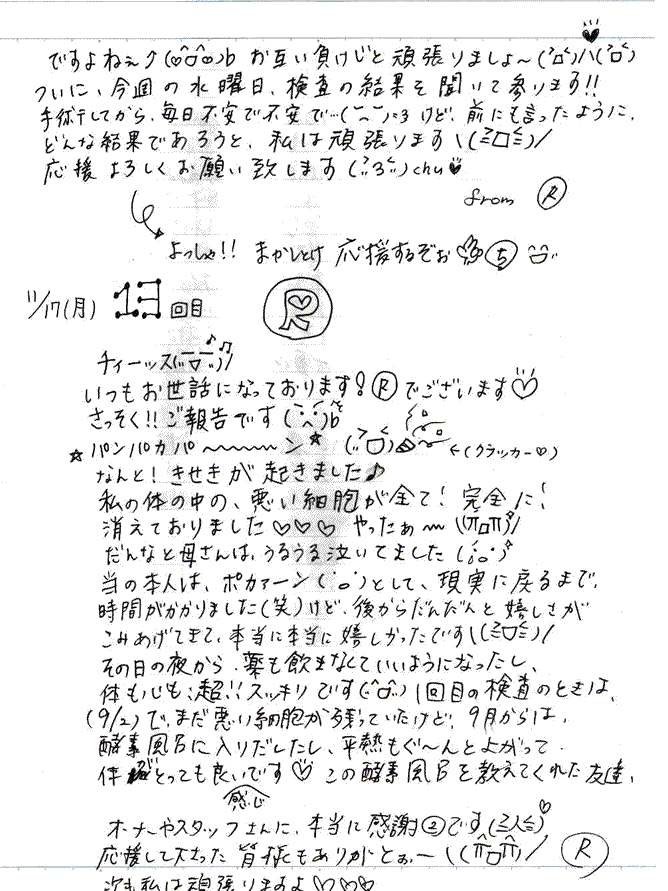 ですよねぇ♪(♡ö♡)b お互い負けじと頑張りましょ〜
ついに、今週の水曜日、検査の結果を聞いて参ります!!
手術してから、毎日不安で不安で…けど、前にも言ったように、
どんな結果であろうと、私は頑張ります\(≧ロ≦)/
応援よろしくお願い致します chu♥
from Ⓡ
よっしゃ!! まかしとけ 応援するぞぉ ㋠
11/17(月) 13回目 R
チィーッス
いつもお世話になっております!Ⓡでございます♡
さっそく!!ご報告です
☆パンパカパ〜〜〜〜ン☆ ←(クラッカー♡)
なんと!きせきが起きました♪
私の体の中の、悪い細胞が全て!完全に!
消えておりました♡♡♡ やったぁ〜
だんなと母さんは、うるうる泣いてました
当の本人は、ポカァーン(゚o゚)として、現実に戻るまで、
時間がかかりました(笑)けど、後からだんだんと嬉しさが
こみあげてきて、本当に本当に嬉しかったです\(≧ロ≦)/
その日の夜から、薬も飲まなくていいようになったし、
体も心も、超!!スッキリです 1回目の検査のときは、
(9/2)で、まだ悪い細胞が残っていたけど、9月からは、
酵素風呂に入りだしたし、平熱もぐ〜んとよがって
体 とっても良いです♡ この酵素風呂を教えてくれた友達、
感じ
オーナーやスタッフさんに、本当に感謝です(≧人≦)
応援して下さった皆様もありがとぉ〜 Ⓡ
次も私は頑張りますよ♡♡♡